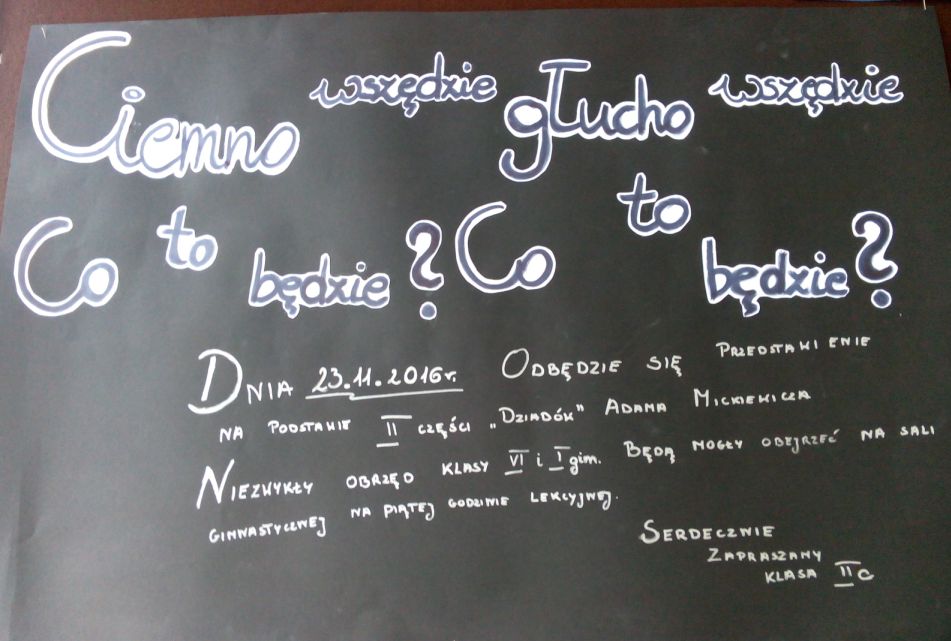 Ciemno wszędzie głucho wszędzie
Co to będzie? Co to będzie?
DNIA 23.11.2016r. ODBĘDZIE SIĘ PRZEDSTAWIENIE
NA PODSTAWIE II CZĘŚCI „DZIADÓW" ADAMA MICKIEWICZA
NIEZWYKŁY OBRZĘD KLASY VI i I gim. BĘDĄ MOGŁY OBEJRZEĆ NA SALI
GIMNASTYCZNEJ NA PIĄTEJ GODZINIE LEKCYJNEJ.
SERDECZNIE
ZAPRASZAMY
KLASA II c